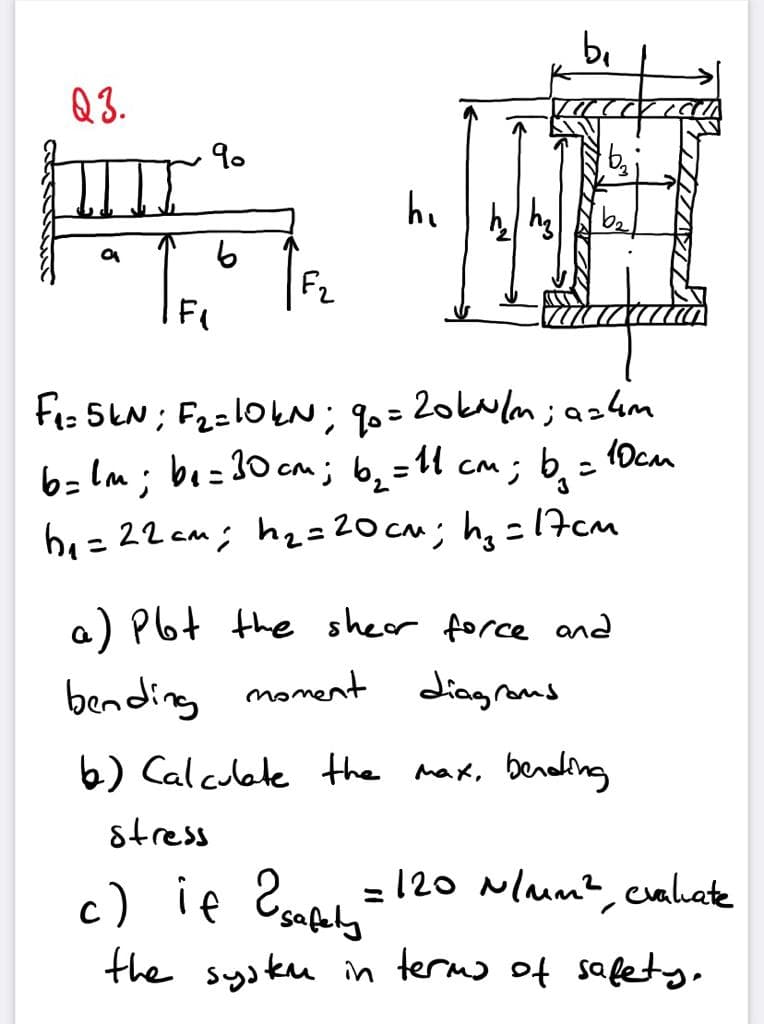 Q3.
b₁
q₀
a
b
F₁
F₂
h₁
h₂
h₃
b₃
b₂
F₁= 5kN ; F₂=10kN ; q₀= 20kN/m ; a=4m
b=1m ; b₁=30 cm ; b₂=11 cm ; b₃ = 10cm
h₁= 22 cm ; h₂=20cm ; h₃=17cm
a) Plot the shear force and
bending moment diagrams
b) Calculate the max. bending
stress
c) if safety =120 N/mm², evaluate
the system in terms of safety.